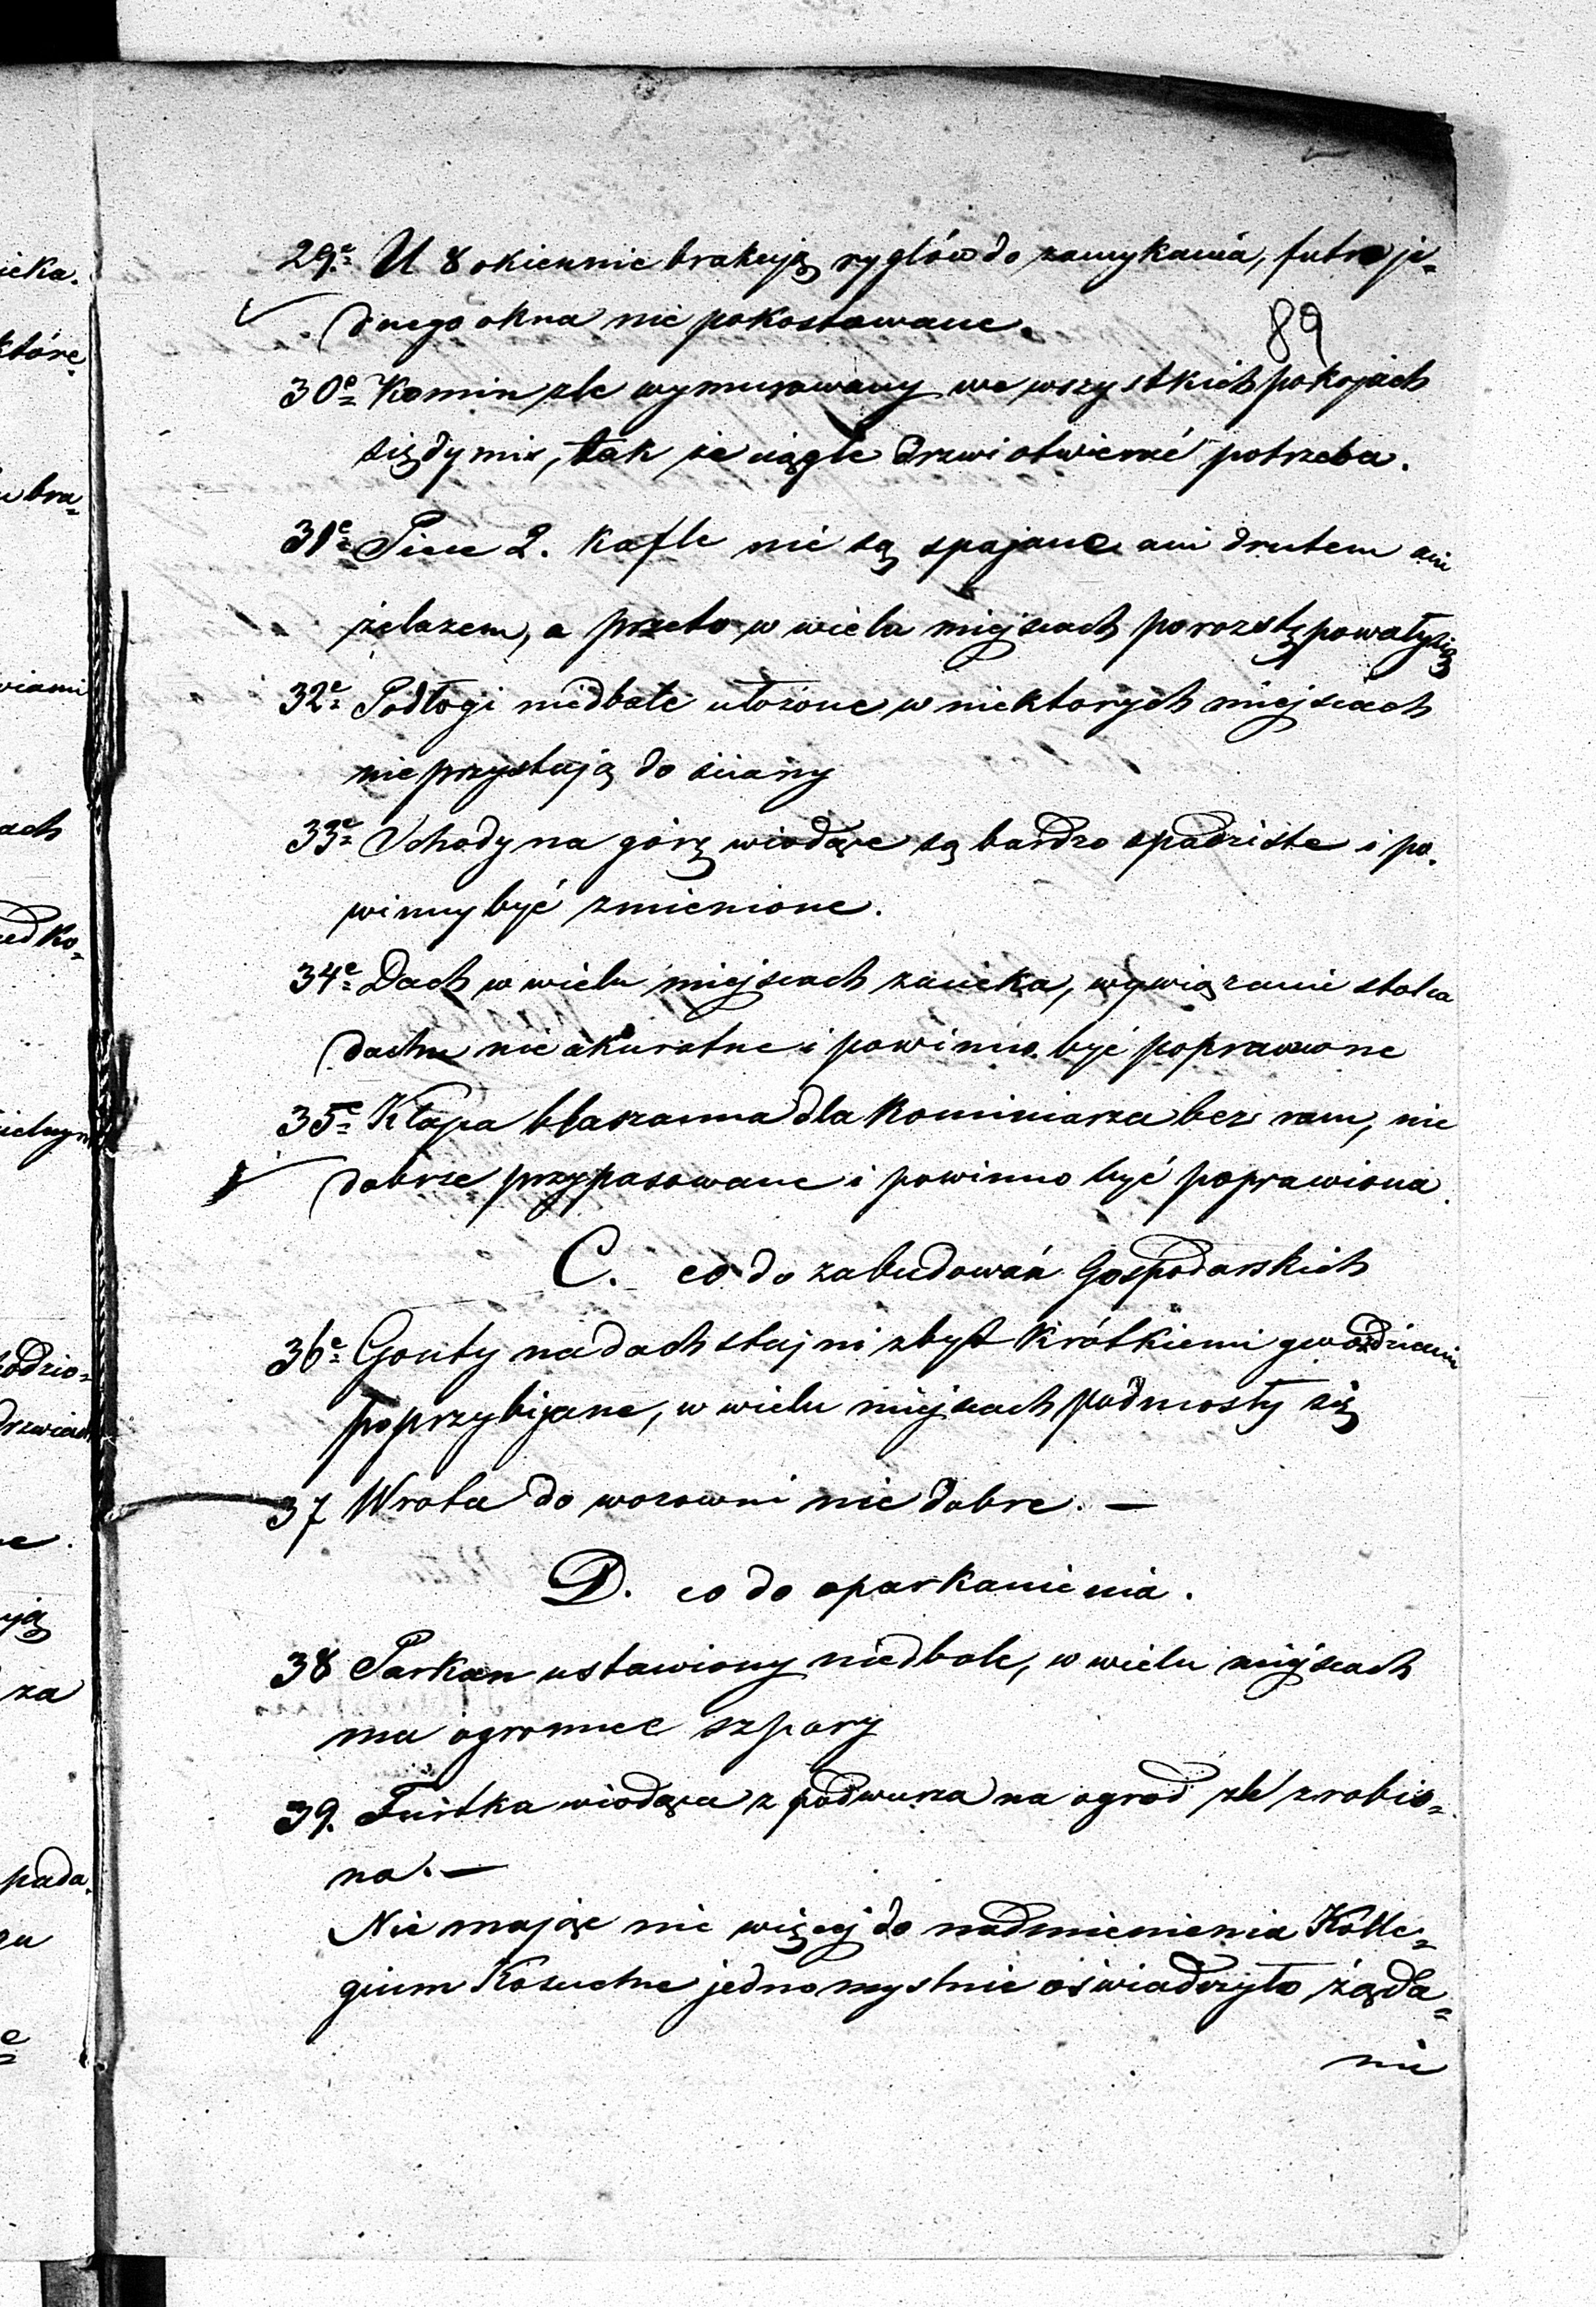 29e U 8 okiennic brakują ryglów do zamykania, futro je-
dnego okna nie pokostowane.
89
30e Komin zle wymurowany we wszystkich pokojach
się dymi, tak że ciągle drzwi otwierać potrzeba.
31e Piece 2. kafle nie są spajane ani drutem ani
żelazem, a przeto w wielu miejscach porozstępowały się
32e Podłogi niedbale ułożone w niektorych miejscach
nie przystają do sciany
33e Schody na górę wiodące są bardzo spadziste i po-
winny być zmienione.
34e Dach w wielu miejscach zacieka, wywiązanie stolca
dachu nie akuratne i powinno być poprawione
35e Klapa blaszanna dla kominiarza bez ram, nie
dobrze przypasowane i powinno być poprawiona.
C. co do zabudowań Gospodarskich
36e Gonty na dach stajni zbyt krótkiemi gwoździami
poprzybijane, w wielu miejscach podniosły się
37 Wrota do wozowni nie dobre. —
D. co do oparkanienia.
38 Parkan ustawiony niedbale, w wielu miejscach
ma ogromne szpary
39. Furtka wiodąca z podwurza na ogrod zle zrobio-
na. —
Nie mając nic więcej do nadmienienia Kolle-
gium Koscielne jednomyslnie oświadczyło żąda-
nie